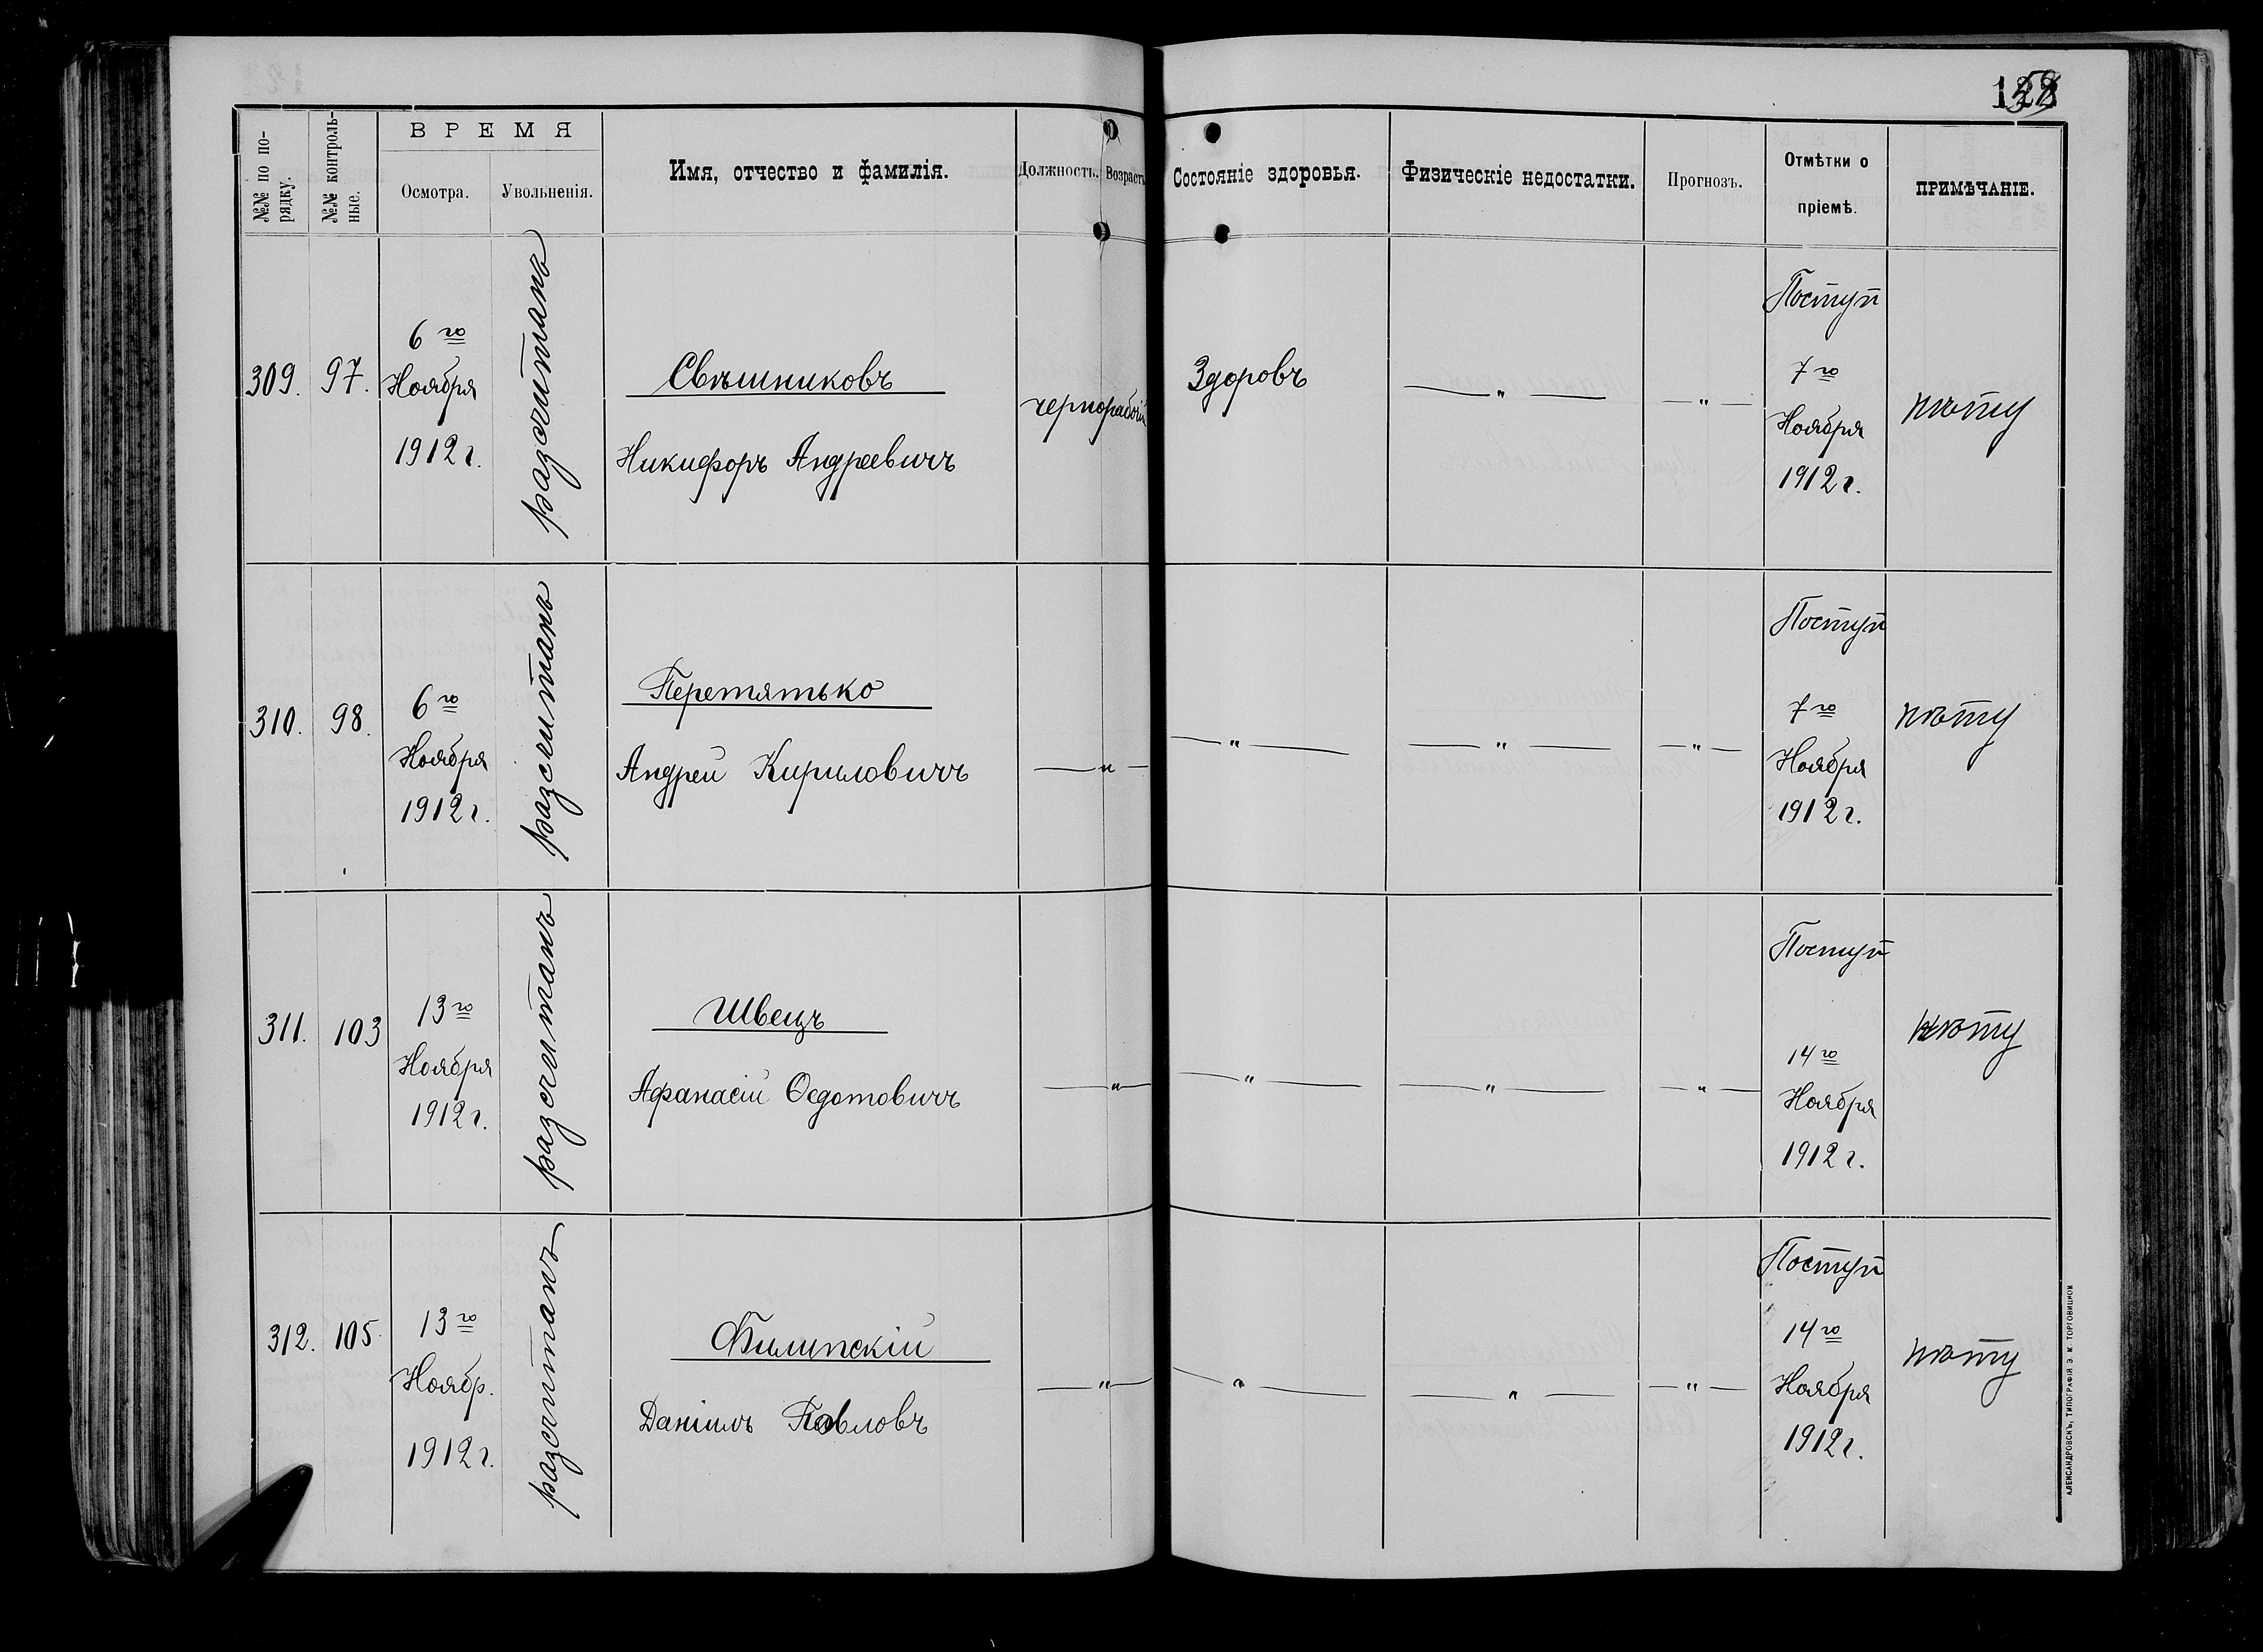 №№ по по-
рядку.
№№ контроль-
ные.
ВРЕМЯ
Осмотра.
Увольненія.
Имя, отчество и фамилія.
Должность.
Возрастъ
Состояніе здоровья.
Физическіе недостатки.
Прогнозъ.
Отмѣтки о
пріемѣ.
ПРИМѢЧАНІЕ.
309.
97.
6го
Ноября
1912 г.
разсчитанъ
Свѣшниковъ
Никифоръ Андреевичъ
чернорабочій
Здоровъ
— " —
— " —
Поступ
7го
Ноября
1912 г.
нѣту
310.
98.
6го
Ноября
1912 г.
разсчитанъ
Перетятько
Андрей Кириловичъ
— " —
— " —
— " —
— " —
Поступ
7го
Ноября
1912 г.
нѣту
311.
103
13го
Ноября
1912 г.
разсчитанъ
Швецъ
Афанасій Ѳедотовичъ
— " —
— " —
— " —
— " —
Поступ
14го
Ноября
1912 г.
нѣту
312.
105
13го
Ноябр.
1912 г.
разсчитанъ
Филипскій
Даніилъ Павловъ
— " —
— " —
— " —
— " —
Поступ
14го
Ноября
1912 г.
нѣту
АЛЕКСАНДРОВСКЪ, ТИПОГРАФІЯ Э. М. ТОРГОВИЦКОЙ